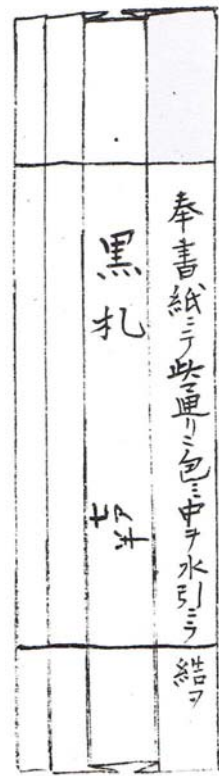 奉書紙ニテ此通リニ包ミ中ヲ水引ニテ結フ
黒札